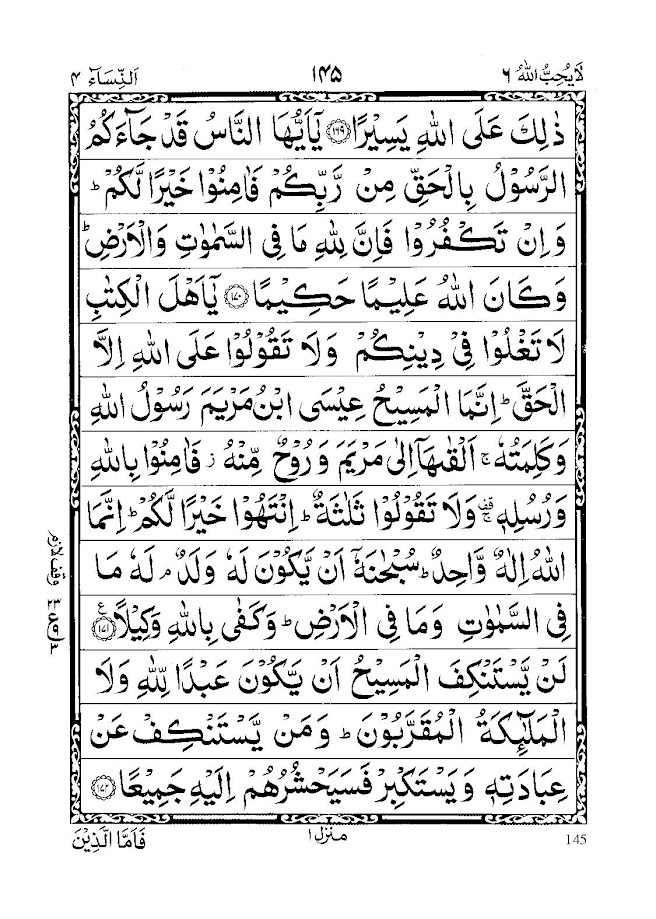 اَلنِّسَآء ۴ ۱۴۵ لَا یُحِبُّ اللّٰهُ ۶
ذٰلِكَ عَلَى اللّٰهِ يَسِيْرًا ﴿۱۶۹﴾ يٰۤاَيُّهَا النَّاسُ قَدْ جَآءَكُمُ
الرَّسُوْلُ بِالْحَقِّ مِنْ رَّبِّكُمْ فَاٰمِنُوْا خَيْرًا لَّكُمْ ؕ
وَاِنْ تَكْفُرُوْا فَاِنَّ لِلّٰهِ مَا فِى السَّمٰوٰتِ وَالْاَرْضِ ؕ
وَكَانَ اللّٰهُ عَلِيْمًا حَكِيْمًا ﴿۱۷۰﴾ يٰۤاَهْلَ الْكِتٰبِ
لَا تَغْلُوْا فِىْ دِيْنِكُمْ وَلَا تَقُوْلُوْا عَلَى اللّٰهِ اِلَّا
الْحَقَّ ؕ اِنَّمَا الْمَسِيْحُ عِيْسَى ابْنُ مَرْيَمَ رَسُوْلُ اللّٰهِ
وَكَلِمَتُهٗ ۚ اَلْقٰىهَاۤ اِلٰى مَرْيَمَ وَرُوْحٌ مِّنْهُ ؗ فَاٰمِنُوْا بِاللّٰهِ
وَرُسُلِهٖ ۚ قف وَلَا تَقُوْلُوْا ثَلٰثَةٌ ؕ اِنْتَهُوْا خَيْرًا لَّكُمْ ؕ اِنَّمَا
اللّٰهُ اِلٰهٌ وَّاحِدٌ ؕ سُبْحٰنَهٗۤ اَنْ يَّكُوْنَ لَهٗ وَلَدٌ ۘ لَهٗ مَا
فِى السَّمٰوٰتِ وَمَا فِى الْاَرْضِ ؕ وَكَفٰى بِاللّٰهِ وَكِيْلًا ﴿۱۷۱﴾ ع
لَنْ يَّسْتَنْكِفَ الْمَسِيْحُ اَنْ يَّكُوْنَ عَبْدًا لِّلّٰهِ وَلَا
الْمَلٰٓئِكَةُ الْمُقَرَّبُوْنَ ؕ وَمَنْ يَّسْتَنْكِفْ عَنْ
عِبَادَتِهٖ وَيَسْتَكْبِرْ فَسَيَحْشُرُهُمْ اِلَيْهِ جَمِيْعًا ﴿۱۷۲﴾
وقف لازم
فَاَمَّا الَّذِيْنَ منزل ۱ 145